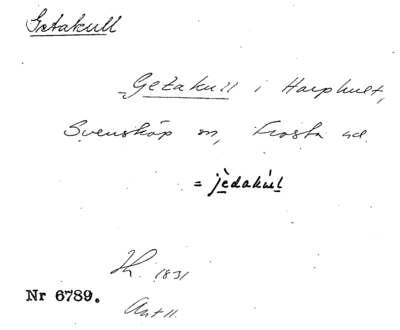 Getakull
Getakull i Harphult,
Svensköp sn, Frosta hd.
= jèdakúl
Lh. 1831
Nr 6789.
Ant 11.